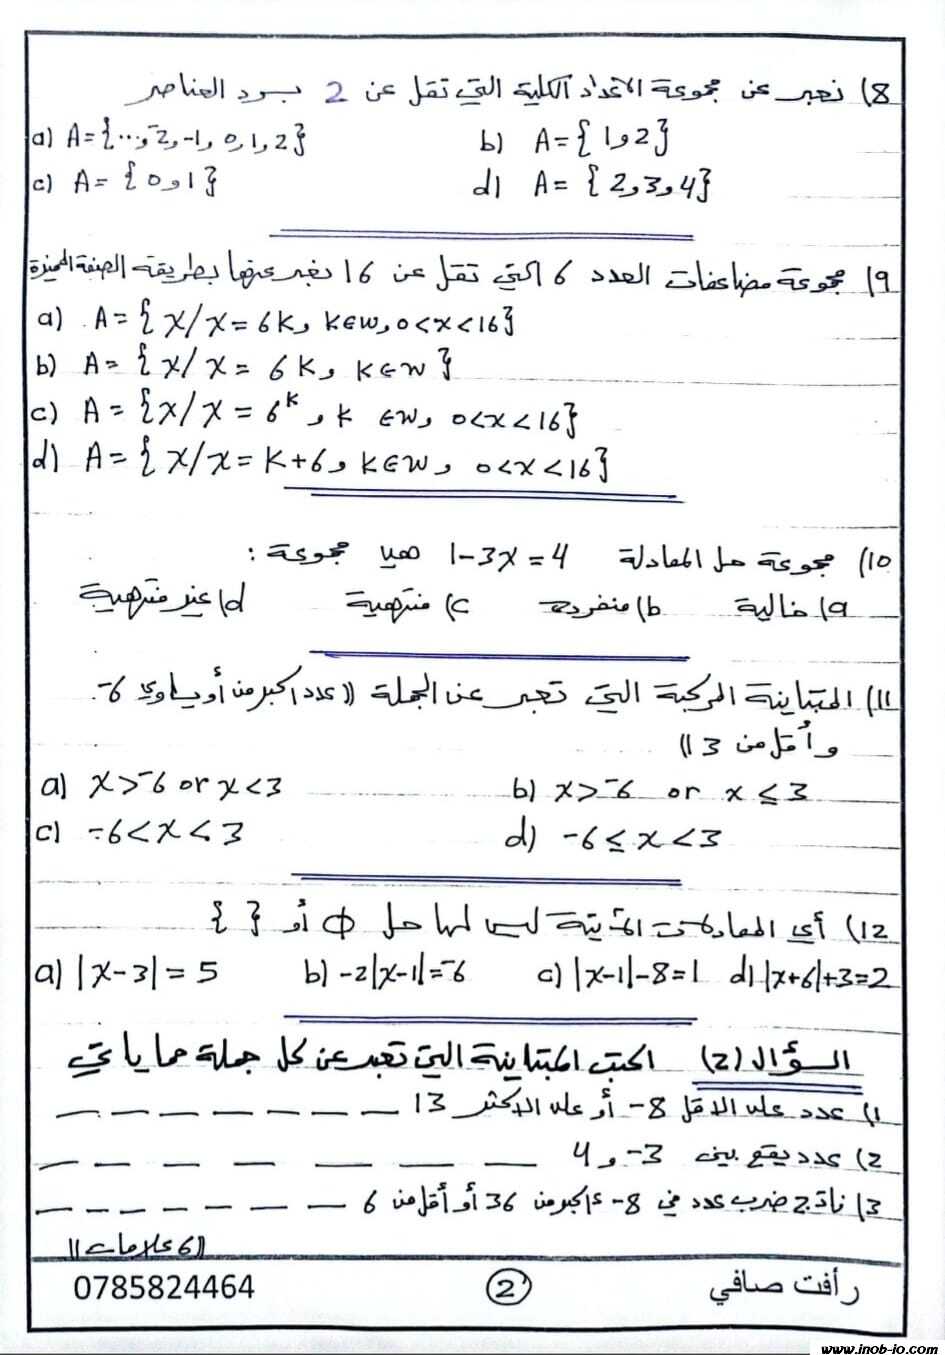 8) نعبر عن مجموعة الاعداد الكلية التي تقل عن 2 بسرد العناصر
a) A={...و-2و-1و0و1و2} b) A={1و2}
c) A={0و1} d) A={2و3و4}
9) مجموعة مضاعفات العدد 6 التي تقل عن 16 نعبر عنها بطريقة الصفة المميزة
a) A={x/x=6kو k∈wو0<x<16}
b) A={x/x=6kو k∈w}
c) A={x/x=6^kو k∈wو 0<x<16}
d) A={x/x=k+6و k∈wو 0<x<16}
10) مجموعة حل المعادلة 1-3x=4 هي مجموعة :
a) خالية b) منفردة c) منتهية d) غير منتهية
11) المتباينة المركبة التي تعبر عن الجملة (( عدد اكبر من أو يساوي -6
و أقل من 3 ))
a) x>-6 or x<3 b) x>-6 or x≤3
c) -6<x<3 d) -6≤x<3
12) أي المعادلات الآتية ليس لها حل Φ أو { }
a) |x-3|=5 b) -2|x-1|=-6 c) |x-1|-8=1 d) |x+6|+3=2
السؤال (2) اكتب المتباينة التي تعبر عن كل جملة مما يأتي
1) عدد على الاقل -8 أو على الاكثر 13 _ _ _ _ _ _ _
2) عدد يقع بين -3 و 4 _ _ _ _ _ _ _ _
3) ناتج ضرب عدد في -8 اكبر من 36 أو أقل من 6 _ _ _ _ _ _ _ _
((6 علامات))
رأفت صافي 2 0785824464
www.inob-jo.com